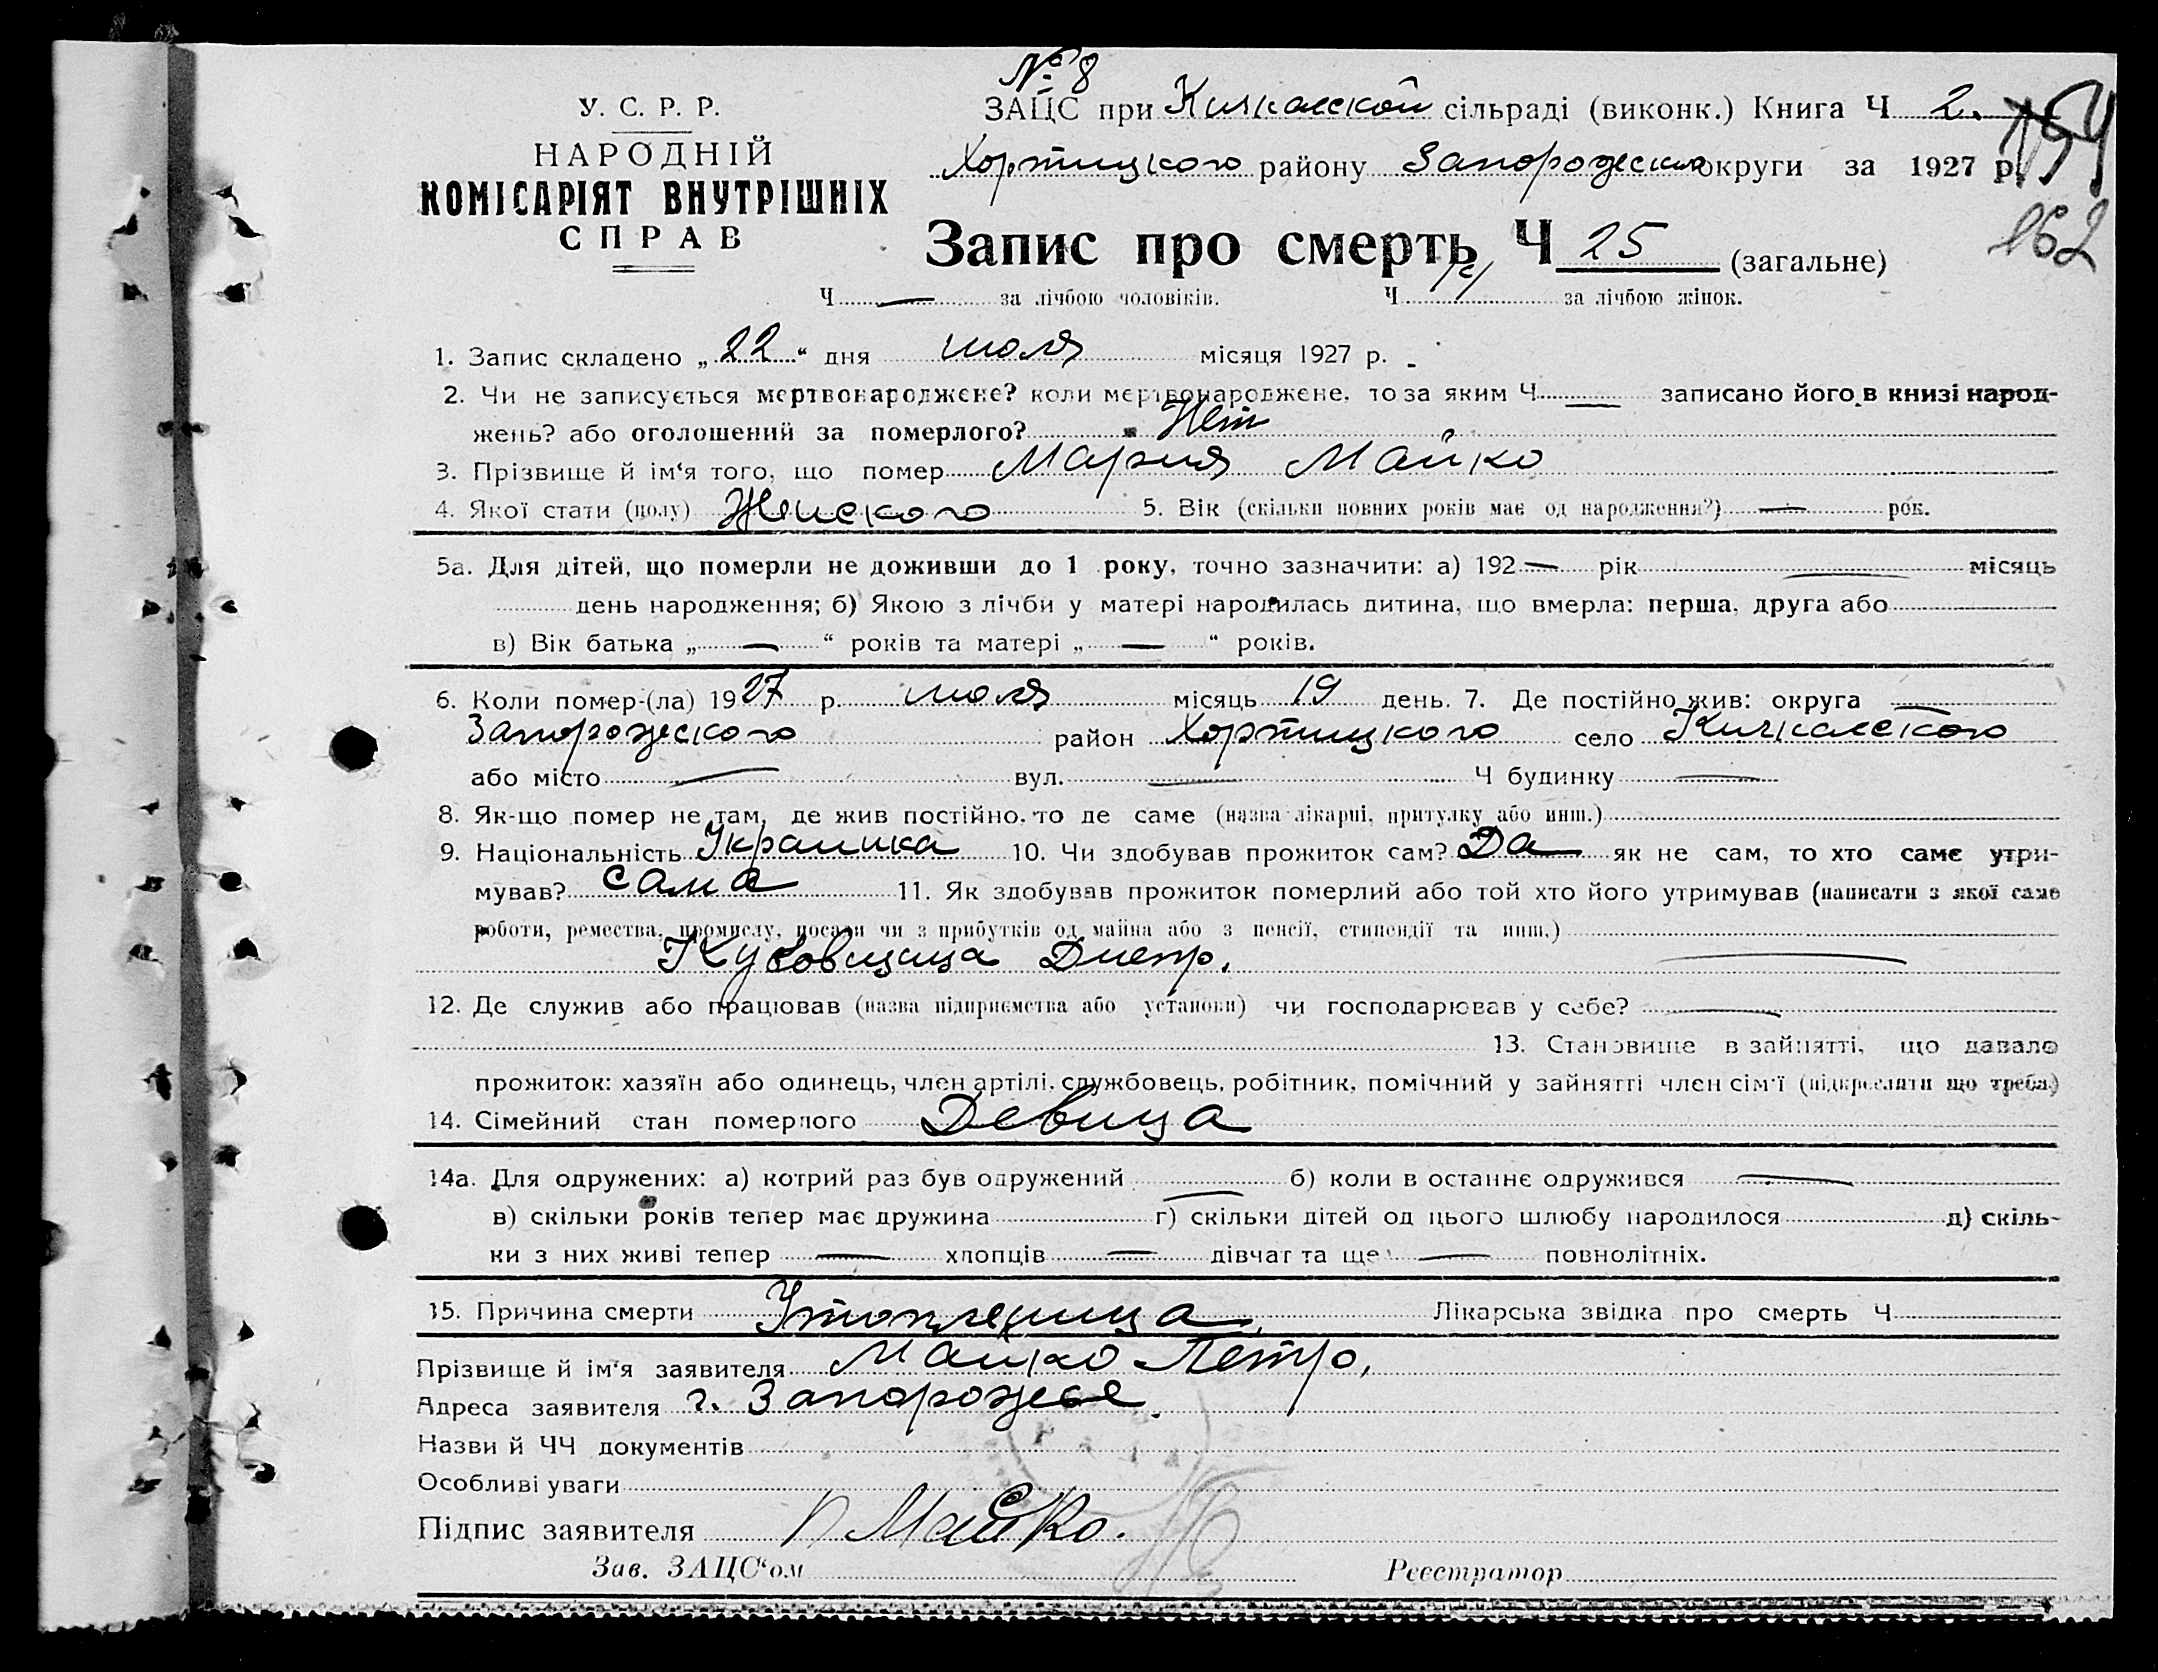 № 8
У. С. Р. Р.
НАРОДНІЙ
КОМІСАРІЯТ ВНУТРІШНІХ
СПРАВ
ЗАЦС при Кичкасской сільраді (виконк.) Книга Ч 2.
Хортицкого району Запорожского округи за 1927 р.
162
Запис про смерть Ч 25 (загальне)
Ч — за лічбою чоловіків. Ч 14 за лічбою жінок.
1. Запис складено „22“ дня июля місяця 1927 р.
2. Чи не записується мертвонароджене? коли мертвонароджене, то за яким Ч — записано його в книзі народ-
жень? або оголошений за померлого? Нет
3. Прізвище й ім‘я того, що помер Мария Майко
4. Якої стати (полу) Женского 5. Вік (скільки повних років має од народження?) — рок.
5а. Для дітей, що померли не доживши до 1 року, точно зазначити: а) 192 — рік — місяць
день народження; б) Якою з лічби у матері народилась дитина, що вмерла: перша, друга або
в) Вік батька „ — “ років та матері „ — “ років.
6. Коли помер-(ла) 1927 р. июля місяць 19 день. 7. Де постійно жив: округа —
Запорожского район Хортицкого село Кичкасского
або місто — вул. — Ч будинку —
8. Як-що помер не там, де жив постійно, то де саме (назва лікарні, притулку або инш.)
9. Національність Украинка 10. Чи здобував прожиток сам? Да як не сам, то хто саме утри-
мував? сама 11. Як здобував прожиток померлий або той хто його утримував (написати з якої саме
роботи, ремества, промислу, посади чи з прибутків од майна або з пенсії, стипендії та инш,)
Днепр. —
12. Де служив або працював (назва підприємства або установи) чи господарював у себе? —
13. Становище в зайнятті, що давало
прожиток: хазяїн або одинець, член артілі, службовець, робітник, помічний у зайнятті член сім‘ї (підкреслити що треба)
14. Сімейний стан померлого Девица
14а. Для одружених: а) котрий раз був одружений — б) коли в останнє одружився —
в) скільки років тепер має дружина г) скільки дітей од цього шлюбу народилося д) скіль-
ки з них живі тепер — хлопців — дівчат та ще — повнолітніх.
15. Причина смерти Утопленица, Лікарська звідка про смерть Ч
Прізвище й ім‘я заявителя Майко Петро,
Адреса заявителя г. Запорожье.
Назви й ЧЧ документів
Особливі уваги
Підпис заявителя П Майко.
Зав. ЗАЦС‘ом Реєстратор